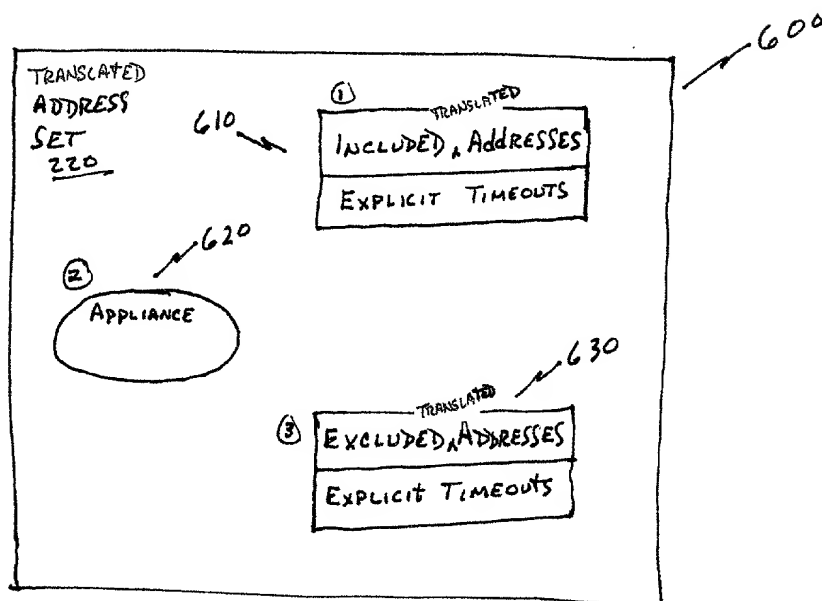 600
TRANSLATED
ADDRESS
SET
220
610
①
TRANSLATED
INCLUDED ^ Addresses
EXPLICIT TIMEOUTS
620
②
APPLIANCE
630
③
TRANSLATED
EXCLUDED ^ ADDRESSES
EXPLICIT TIMEOUTS